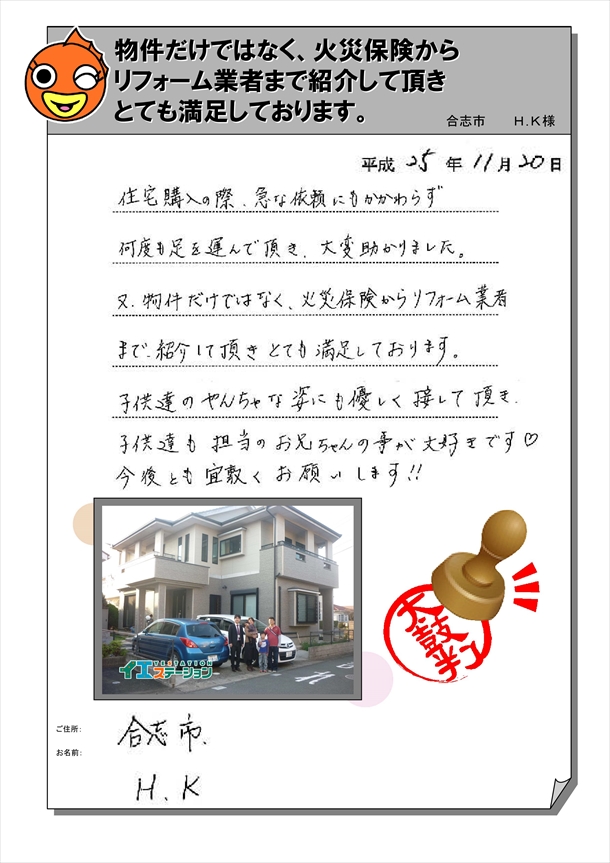 物件だけではなく、火災保険から
リフォーム業者まで紹介して頂き
とても満足しております。
合志市 H.K様
平成 25 年 11月 20日
住宅購入の際、急な依頼にもかかわらず
何度も足を運んで頂き、大変助かりました。
又、物件だけではなく、火災保険からリフォーム業者
まで、紹介して頂きとても満足しております。
子供達のやんちゃな姿にも優しく接して頂き、
子供達も担当のお兄ちゃんの事が大好きです♡
今後とも宜敷くお願いします!!
YESTATION
イエステーション
太鼓判
ご住所: 合志市.
お名前: H.K